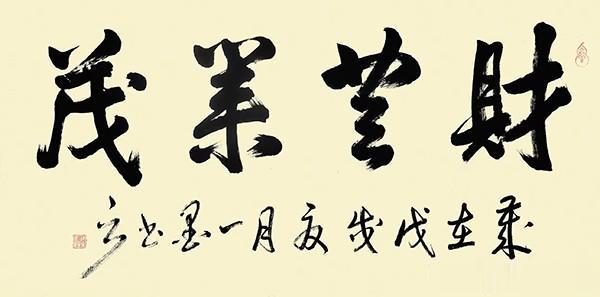 財豐業茂
歲在戊戌夏月一墨書